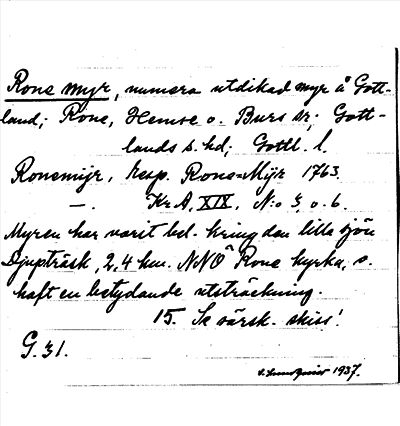 Rone myr, numera utdikad myr å Gott-
land; Rone, Hemse o. Burs sn; Gott-
lands s. hd; Gottl. l.
Ronemijr, resp. Rone=Mijr 1763.
—. Kr A, XIX, N:o 3, o. 6.
Myren har varit bel. kring den lilla sjön
Djupträsk, 2,4 km. NNO Rone kyrka, o.
haft en betydande utsträckning.
15. Se särsk. skiss!
G. 31.
1937.